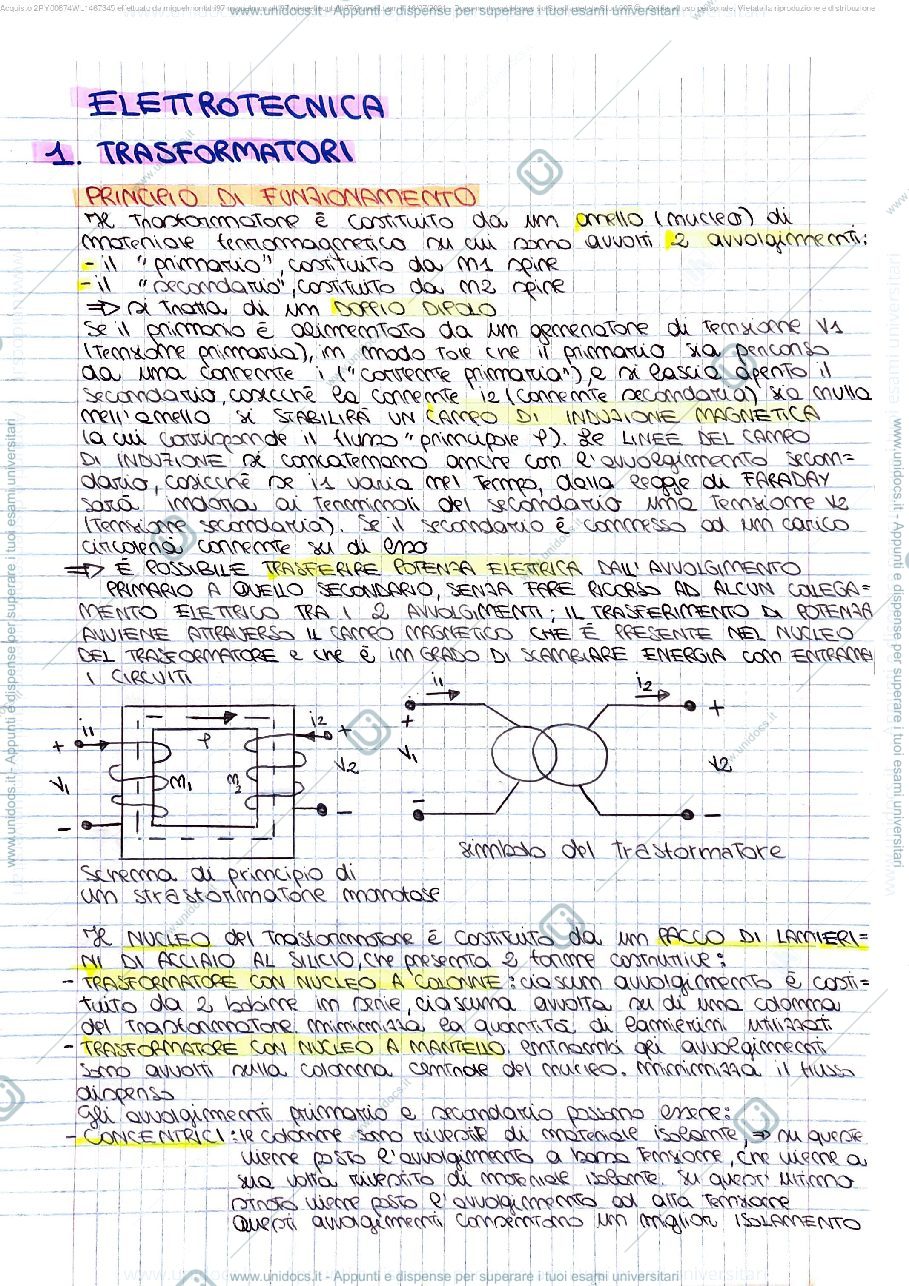 www.unidocs.it - Appunti e dispense per superare i tuoi esami universitari
ELETTROTECNICA
1. TRASFORMATORI
PRINCIPIO DI FUNZIONAMENTO
Il trasformatore è costituito da un anello (nucleo) di
materiale ferromagnetico su cui sono avvolti 2 avvolgimenti:
- il "primario", costituito da n1 spire
- il "secondario", costituito da n2 spire
⇒ si tratta di un DOPPIO DIPOLO
Se il primario è alimentato da un generatore di tensione V1
(tensione primaria), in modo tale che il primario sia percorso
da una corrente i1 ("corrente primaria"), e si lascia aperto il
secondario, cosicché la corrente i2 (corrente secondaria) sia nulla
nell'anello si STABILIRÀ UN CAMPO DI INDUZIONE MAGNETICA
(a cui corrisponde il flusso "principale φ). Le LINEE DEL CAMPO
DI INDUZIONE si concatenano anche con l'avvolgimento secon=
dario, cosicché se i1 varia nel tempo, dalla legge di FARADAY
sarà indotta ai terminali del secondario una tensione V2
(tensione secondaria). Se il secondario è connesso ad un carico
circolerà corrente su di esso
⇒ È POSSIBILE TRASFERIRE POTENZA ELETTRICA DALL'AVVOLGIMENTO
PRIMARIO A QUELLO SECONDARIO, SENZA FARE RICORSO AD ALCUN COLEGA=
MENTO ELETTRICO TRA I 2 AVVOLGIMENTI; IL TRASFERIMENTO DI POTENZA
AVVIENE ATTRAVERSO IL CAMPO MAGNETICO CHE È PRESENTE NEL NUCLEO
DEL TRASFORMATORE e che è in GRADO DI SCAMBIARE ENERGIA con ENTRAMBI
I CIRCUITI
i1 φ i2
+ +
V1 n1 n2 V2
- -
i1 i2
+ +
V1 V2
- -
simbolo del trasformatore
Schema di principio di
un strasformatore monofase
Il NUCLEO del trasformatore è costituito da un PACCO DI LAMIERI=
NI DI ACCIAIO AL SILICIO, che presenta 2 forme costruttive:
- TRASFORMATORE CON NUCLEO A COLONNE: ciascun avvolgimento è costi=
tuito da 2 bobine in serie, ciascuna avvolta su di una colonna
del trasformatore. minimizza la quantità di lamierini utilizzati
- TRASFORMATORE CON NUCLEO A MANTELLO. entrambi gli avvolgimenti
sono avvolti sulla colonna centrale del nucleo. minimizza il flusso
disperso
Gli avvolgimenti primario e secondario possono essere:
- CONCENTRICI: le colonne sono rivestite di materiale isolante, ⇒ su queste
viene posto l'avvolgimento a bassa tensione, che viene a
sua volta rivestito di materiale isolante. Su quest'ultimo
strato viene posto l'avvolgimento ad alta tensione
Questi avvolgimenti consentono un miglior ISOLAMENTO
www.unidocs.it - Appunti e dispense per superare i tuoi esami universitari